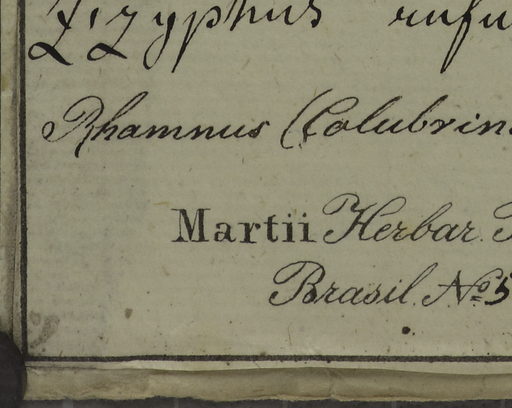 Zizyphus rufu
Rhamnus (Colubrin
Martii Herbar.
Brasil. No. 5